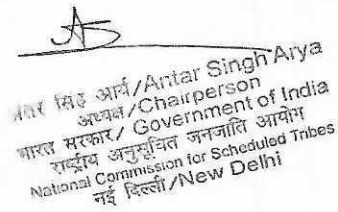 अंतर सिंह आर्य/Antar Singh Arya
अध्यक्ष/Chairperson
भारत सरकार/Government of India
राष्ट्रीय अनुसूचित जनजाति आयोग
National Commission for Scheduled Tribes
नई दिल्ली/New Delhi